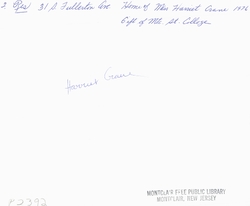 31 S Fullerton Ave Home of Miss Harriet Crane 1976
Gift of Mt. St. College
Harriet Crane
MONTCLAIR FREE PUBLIC LIBRARY
MONTCLAIR, NEW JERSEY
P2392